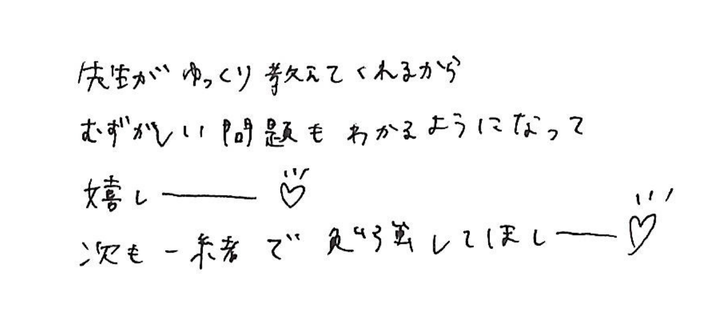 先生がゆっくり教えてくれるから
むずかしい問題もわかるようになって
嬉し――♡
次も一緒で勉強してほし――♡